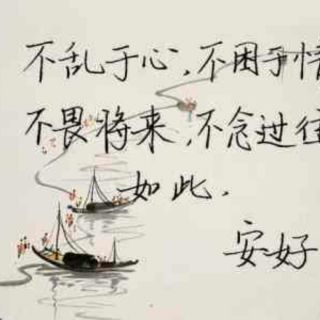 不乱于心,不困于情
不畏将来,不念过往
如此.
安好